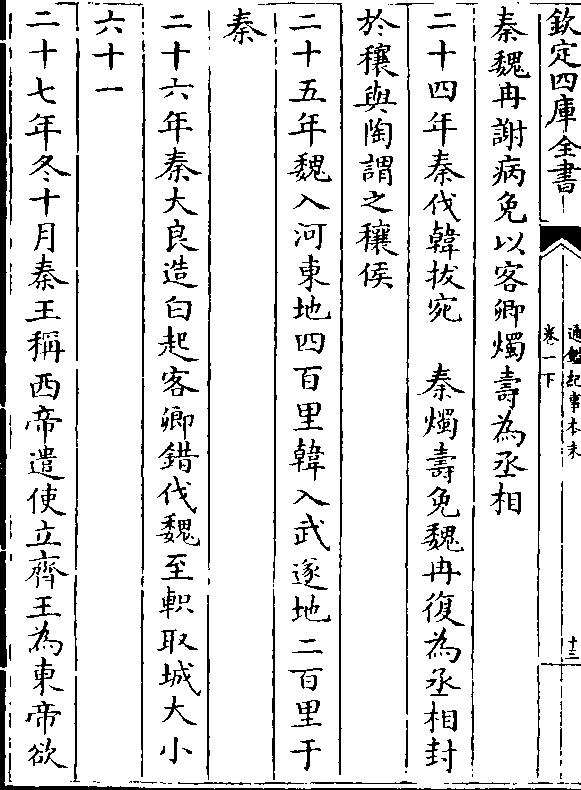 欽定四庫全書
通鑑紀事本末
卷一下
十三
秦魏冉謝病免以客卿燭壽為丞相
二十四年秦伐韓拔宛　秦燭壽免魏冉復為丞相封
於穰與陶謂之穰侯
二十五年魏入河東地四百里韓入武遂地二百里于
秦
二十六年秦大良造白起客卿錯伐魏至軹取城大小
六十一
二十七年冬十月秦王稱西帝遣使立齊王為東帝欲